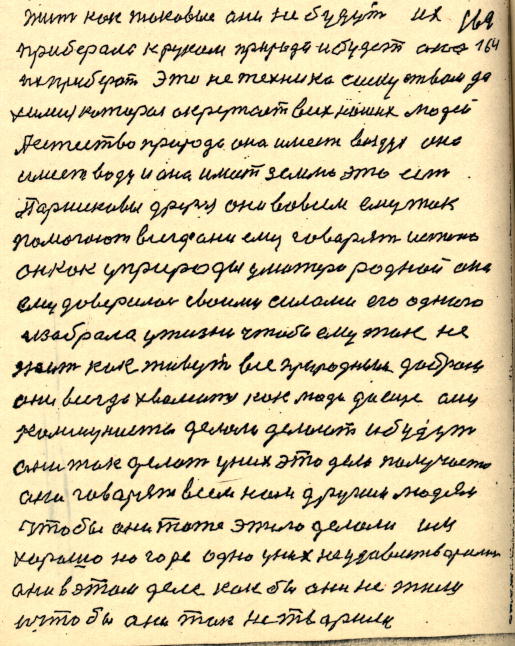 жит как таковые они не будут их 169
приберала к рукам природа и будет она 164
их приберот это не техника с искуством да
химия которая окружает всех наших людей
Естество природа она имеет воздух она
имеет воду и она имат землю это ест
Паршиковы друзя они во всем ему так
помогают всегда они ему говарят истено
он как у природы у матера родной она
ему доверилас своими силами его одного
изабрала у жизни чтобы ему так не
жит как живут все природным добром
они всегда хвалятся как люди да еще они
комунисты делали делают и будут
они так делат у них это дело получаето
они говарят всем нам другим людям
чтобы они тоже это делали им
харашо но горе одно у них неудавлетварили
они в этом деле как бы они не жили
и чтобы они так не тварили